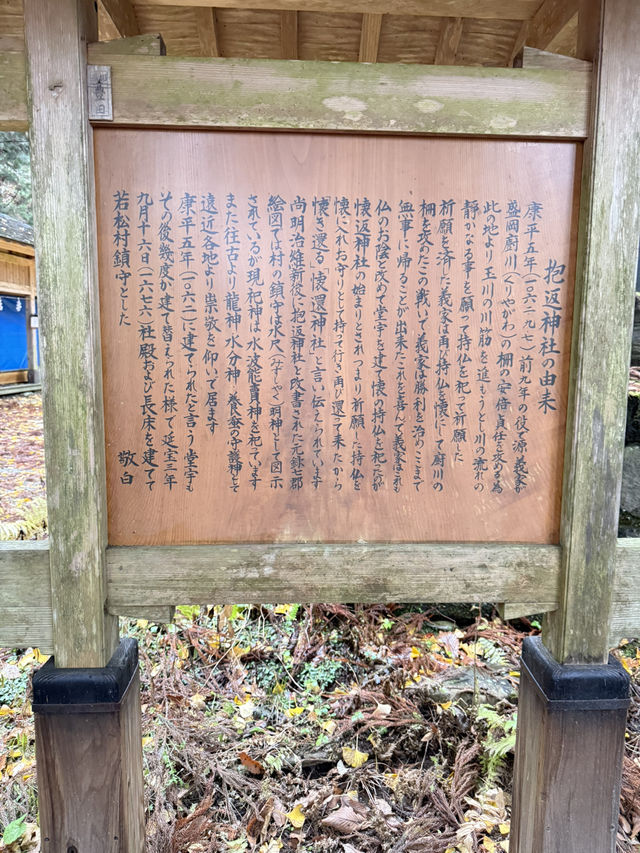 抱返神社の由来
康平五年(一〇六二・九七)前九年の役で源義家が
盛岡厨川(くりやがわ)の柵の安倍貞任を攻める為
此の地より玉川の川筋を進もうと川の流れの
静かなる事を願って持仏を祀って祈願した
祈願を済した義家は再び持仏を懐にして厨川の
柵を攻めたこの戦いで義家は勝利を治めここまで
無事に帰ることが出来たこれを喜んで義家はこれも
仏のお陰と改めて堂宇を建て懐の持仏を祀ったのが
懐返神社の始まりとされつまり祈願した持仏を
懐に入れお守りとして持って行き再び還って来たから
懐き還る「懐還神社」と言い伝えられています
尚明治維新後に抱返神社と改書された元録七郡
絵図では村の鎮守は水尺(みずしゃく)明神として図示
されているが現祀神は水波能賣神を祀っています
また往古より龍神・水分神・養蚕の守護神として
遠近各地より崇敬を仰いで居ます
康平五年(一〇六二)に建てられたと言う堂宇も
その後幾度か建て替えられた様で延宝三年
九月十六日(一六七六)社殿および長床を建てて
若松村鎮守とした
敬白